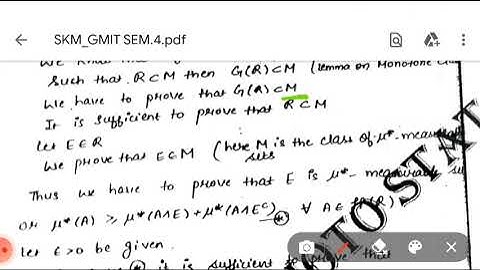 SKM_GMIT SEM.4.pdf
We know that
Such that R⊂M then G(R)⊂M (lemma on Monotone
We have to prove that G(R)⊂M
It is sufficient to prove that R⊂M
Let E∈R
We prove that E∈M (here M is the class of μ*-measurable
sets
Thus we have to prove that E is μ*-measurable
or μ*(A) ≥ μ*(A∧E)+μ*(A∧Eᶜ) * ∀ A∈ (R)
Let ε>0 be given.
it is sufficient to prove that
OTO STAT